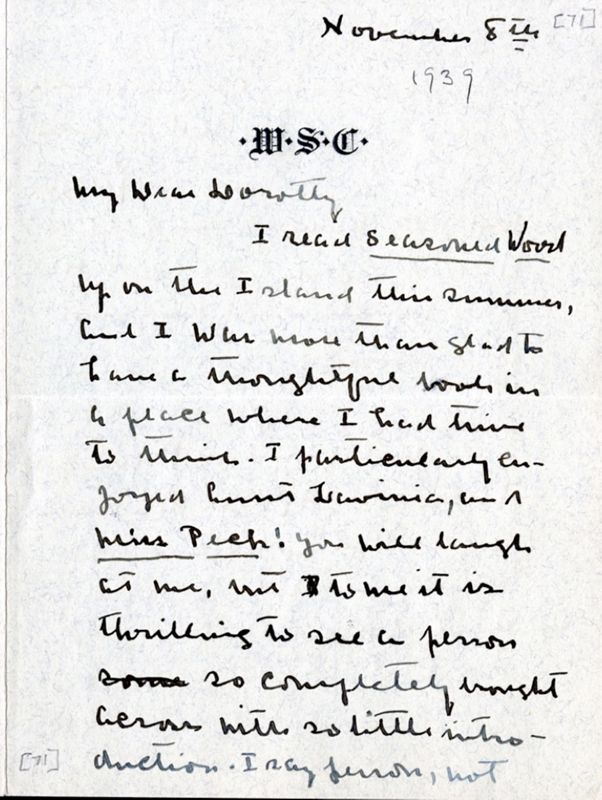 November 8th [71]
1939
·W·S·C·
My Dear Dorothy
I read Seasoned Wood
up on the Island this summer,
and I was more than glad to
have a thoughtful book in
a place where I had time
to think. I particularly en-
joyed Aunt Lavinia, and
Miss Peck! You will laugh
at me, but to me it is
thrilling to see a person
some so completely brought
across with so little intro-
duction. I say person, not
[71]